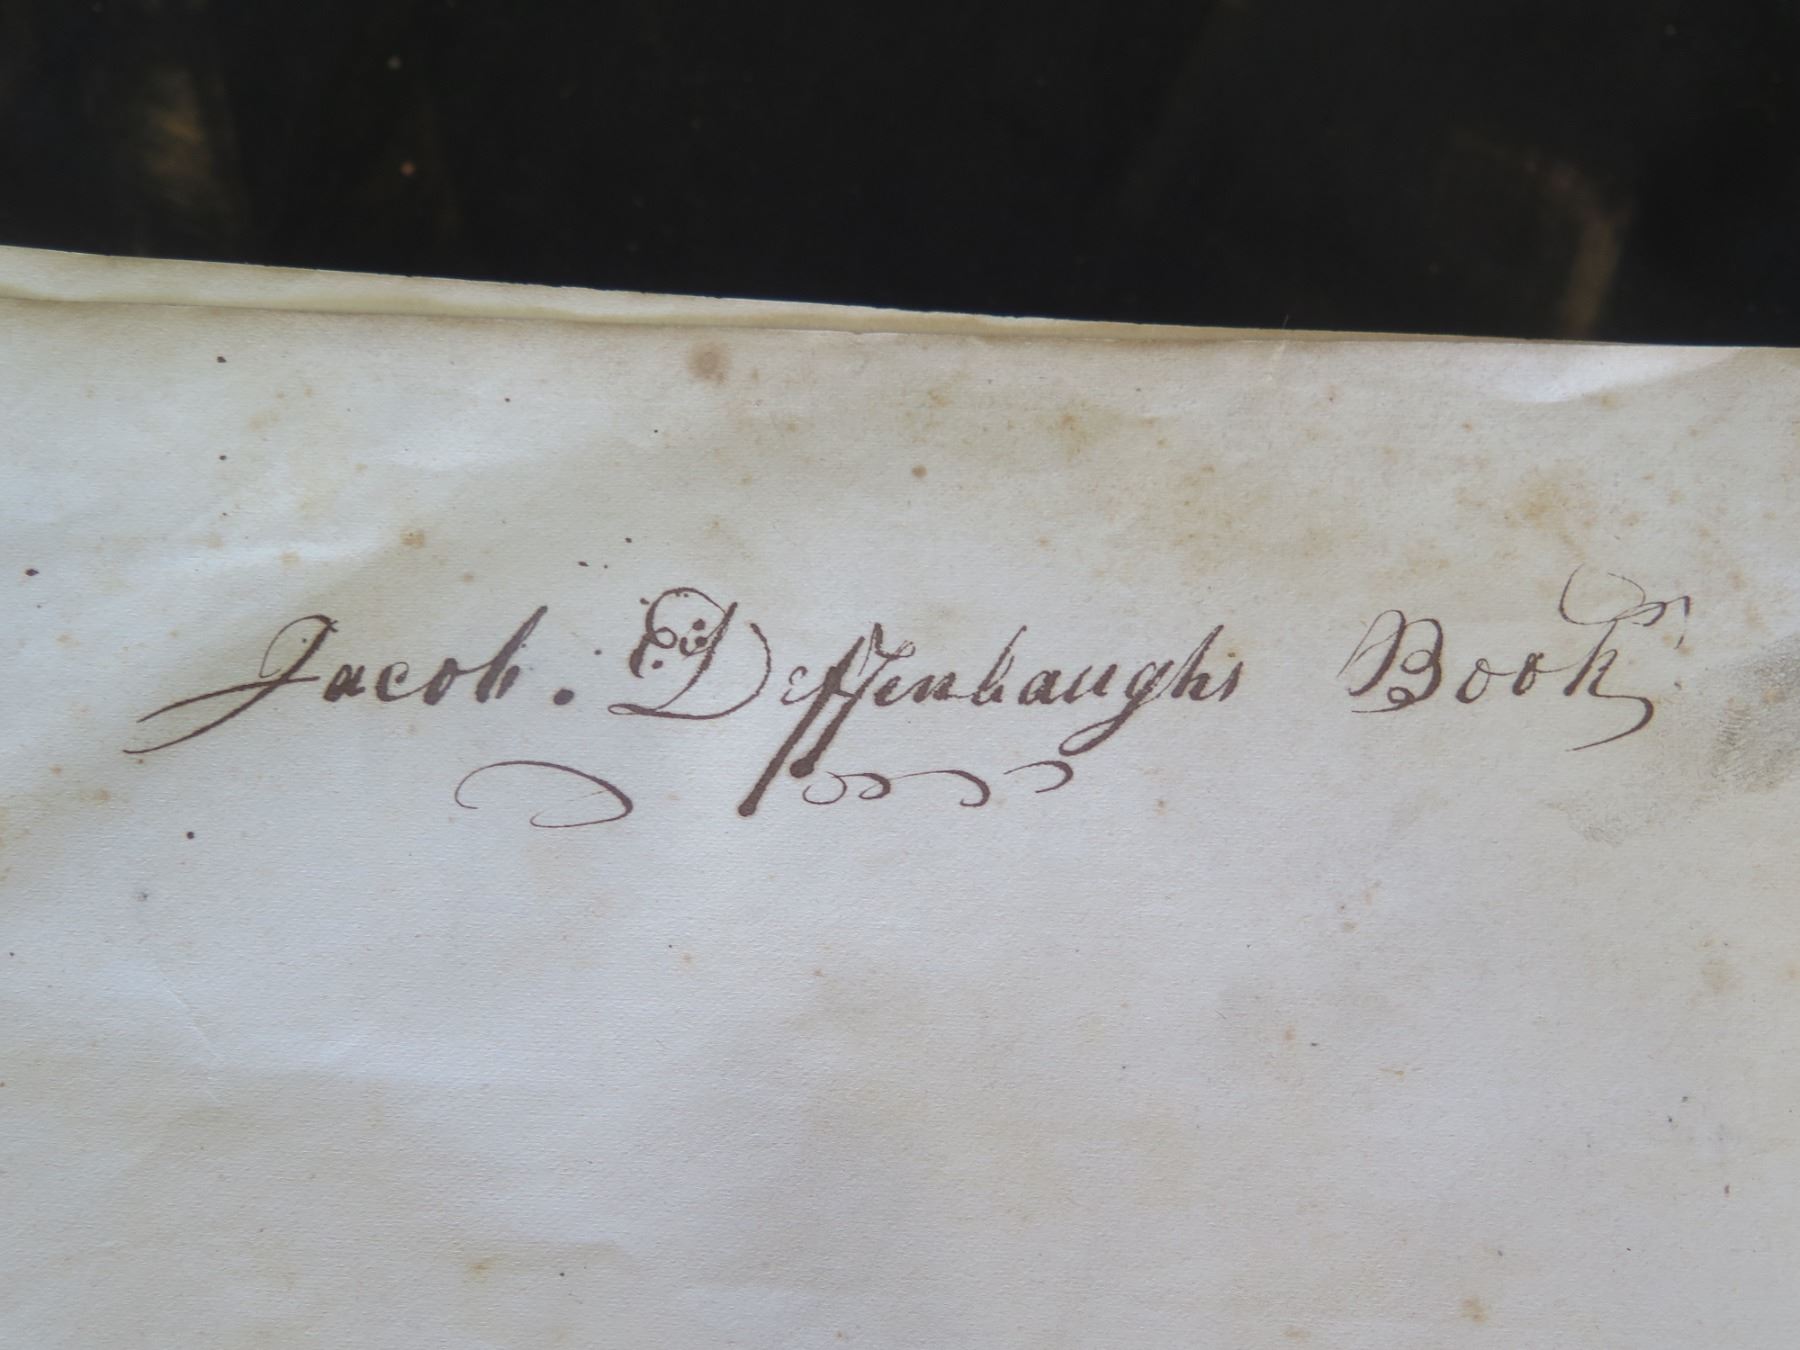 Jacob. Deffenbaughs Book